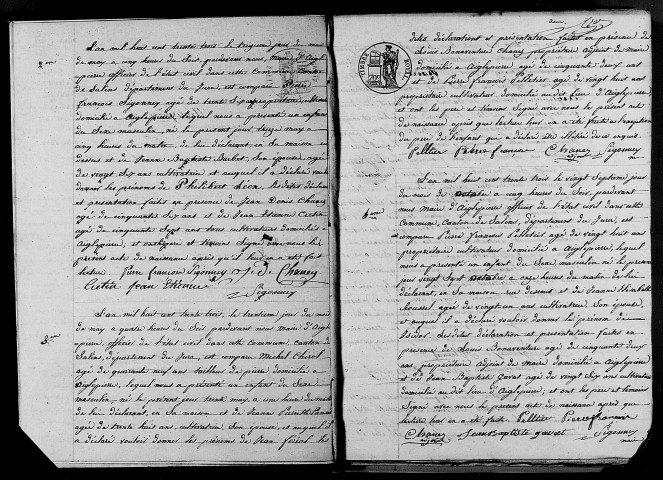 2 eme
L'an mil huit cent trente trois le treizieme jour du mois
de may a cinq heures du Soir pardevant nous, Maire d'Aigle
pierre officier de l'état civil dans cette Commune Canton
de Salins département du Jura, est comparu Pierre
François Sigonney agé de trente Six proprietaire
domicilié a Aiglepierre, lequel nous a presenté un enfant
du Sexe masculin, né le present jour treize may a
cinq heures du matin, de lui déclarant, en Sa maison
dessus et de Jeanne Baptiste Barbet, Son épouse agé
de vingt Six ans cultivatrice et auquel il a déclaré vouloir
donner les prénoms de Philibert Léon, lesdites déclaration
et presentation faites en presence de Jean Denis Chaney
agé de cinquante Six ans et de Jean Etienne Cretin
agé de cinquante Sept ans tous cultivateurs domiciliés a
Aiglepierre, et ont pere et temoins Signé avec nous le
présent acte de naissance après qu'il leur en a été fait
lecture. Pierre françois Sigonney J. D. Chaney
Cretin Jean Etienne
Sigonney
3 eme
L'an mil huit cent trente trois, le trentieme jour du mois
de may a quatre heures du Soir pardevant nous Maire d'Aigle
pierre, officier de l'état civil dans cette Commune, Canton de
Salins, département du Jura, est comparu Michel
agé de quarante neuf ans tailleur de pierre domicilié a
Aiglepierre, lequel nous a présenté un enfant de Sexe
masculin, né le présent jour trente may a
de lui déclarant, en Sa maison et de Jeanne
agé de trente huit ans, cultivatrice, Son épouse, et auquel il
a déclaré vouloir donner les prénoms de Jean les
dites déclarations et présentation faites en presence de
Louis Bonaventure Chaney propriétaire adjoint de maire
domicilié a Aiglepierre agé de cinquante deux ans
de Pierre François Pelletier agé de vingt huit ans
propriétaire cultivateur domicilié au dit lieu d'Aiglepierre
et ont les pere et temoins Signé avec nous le present acte
de naissance après que lecture leur en a été faite a l'exception
du pere de l'enfant qui a déclaré être illitéré de ce enquis.
Pellier Pierre francois Chaney Sigonney
TIMBRE ROYAL
4 eme
L'an mil huit cent trente trois le vingt Septieme jour
du mois de octobre a cinq heures du Soir, pardevant
nous Maire d'Aiglepierre officier de l'état civil dans cette
Commune Canton de Salins, département du Jura, est
comparu Pierre François Pelletier agé de vingt huit ans
propriétaire cultivateur domicilié a Aiglepierre, lequel
nous a présenté un enfant du Sexe masculin né le present
jour vingt Sept octobre a onze heures du matin de lui
déclarant, en Sa maison rue dessous et de Jeanne
Roussel agé de vingt un ans cultivatrice, Son épouse,
et auquel il a déclaré vouloir donner le prénom de
lesdites déclaration et présentation faites en
presence de Louis Bonaventure agé de cinquante deux
ans, propriétaire Adjoint de Maire domicilié a Aiglepierre
et de Jean Baptiste Gavat agé de vingt Six ans cultivateur
domicilié au dit lieu d'Aiglepierre, et ont les pere et temoins
Signé avec nous le present acte de naissance après que
lecture leur en a été faite. Pellier Pierre francois
Chaney Jean Baptiste Sigonney